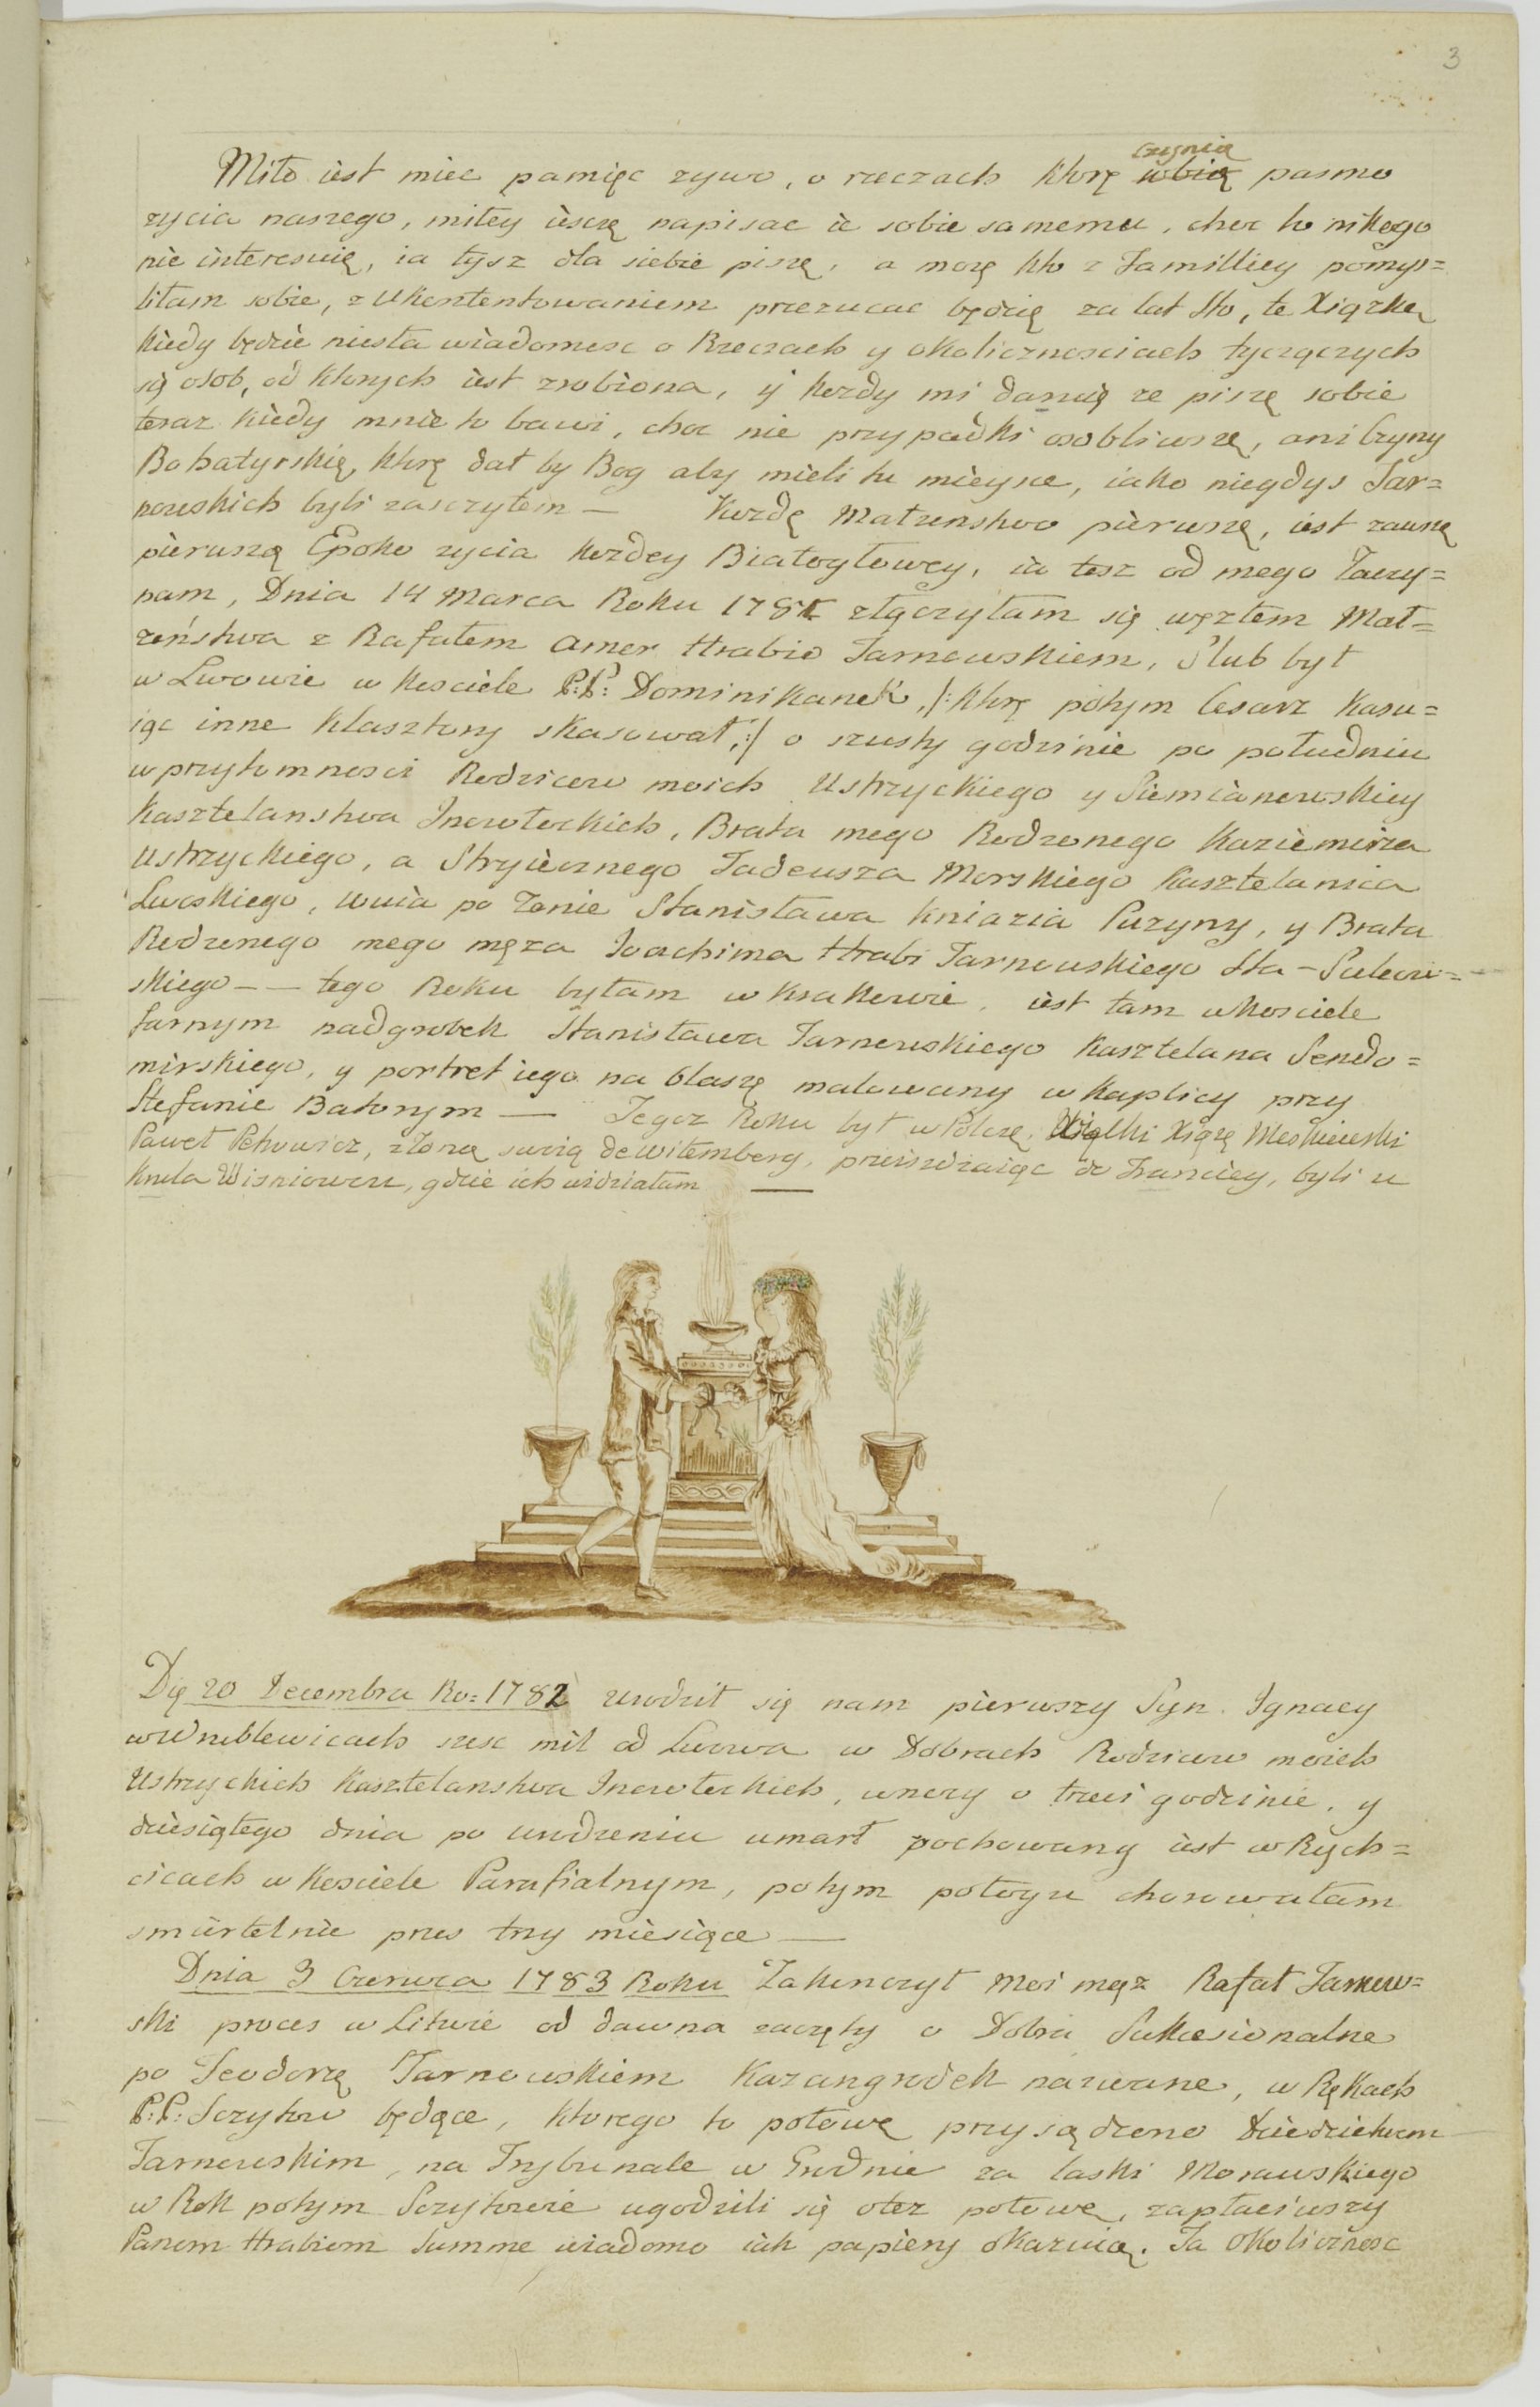 3
czynią
Miło iest miec pamięc zywo, o rzeczach ktorę wbię pasmo
zycia naszego, miley ieszę napisac ie sobie samemu, choc to nikogo
nie interesuię, ia tysz dla siebie piszę, a mozę kto z Familliey pomys=
litam sobie, z Ukententowaniem przezucac będzię za lat sto, te Xiązkę
kiedy będzie niesta wiadomosc o Rzeczach y okolicznosciach tyczączych
się osob, od ktorych iest zrobiona, y kozdy mi daruię ze piszę sobie
teraz kiedy mnie to bawi, choc nie przypadki osobliwszę, ani Czyny
Bohatyrskię, ktorę dał by Bog aby mieli tu mieysce, iako niegdys Tar=
nowskich byli zasczytem — Kozdę Małzenstwo pierwszę, iest zawszę
pierwszą Epoko zycia kozdey Białogłowey, ia tesz od mego Zaczy=
nam, Dnia 14 Marca Roku 1781 złączyłam się węztem Mał=
zeństwa z Rafałem Amor Hrabio Tarnowskiem, Slub był
w Lwowie w kosciele P:P: Dominikanek, /: ktorę potym Cesarz kasu=
iąc inne klasztory skasował, :/ o szusty godzinie po południu
w przytomnosci Rodzicow moich Ustrzyckiego y Siemianowskiey
Kasztelanstwa Inowłockich, Brata mego Rodzonego Kaziemirza
Ustrzyckiego, a Stryiecznego Tadeusza Morskiego Kasztelanica
Lwoskiego, wuia po Zonie Stanisława Kniazia Puzyny, y Brata
Rodzonego mego męza Joachima Hrabi Tarnowskiego Sta-Sulewi=
skiego — — tego Roku byłam w Krakowie, iest tam w kosciele
farnym nadgrobek Stanisława Tarnowskiego Kasztelana Sendo=
mirskiego, y portret iego na blaszę malowany w kaplicy przy
Stefanie Batorym — Tegoz Roku był w Polszę, Wielki Xiązę Moskiewski
Paweł Petrowicz, z Zoną swoią de Witemberg, przeiezdzaiąc do Franciey, byli u
Krula Wisniowcu, gdzie ich widziałam —
Dię 20 Decembra Ro: 1782 urodził się nam pierwszy Syn Ignacy
w Wrublewicach szesc mil od Lwowa w Dobrach Rodzicow moich
Ustrzyckich Kasztelanstwa Inowłockich, wnocy o trzeci godzinie, y
dziesiątego dnia po urodzeniu umarł pochowany iest w Rych=
cicach w kosciele Parafialnym, potym połogu chorowałam
smiertelnie przes trzy miesiące —
Dnia 3 Czerwca 1783 Roku Zakonczył Moi męz Rafał Tarnow=
ski proces w Litwie od dawna zaczęty o Dobra Sukcesionalne
po Teodorzę Tarnowskiem Kazangrodek nazwane, w Rękach
P:P: Sczytow będące, ktorego to połowę przysądzono Dziedzicom
Tarnowskim, na Trybunale w Grodnie za laski Morawskiego
w Rok potym Sczytowie ugodzili się otez połowę, zapłaciwszy
Panom Hrabiom Summe wiadomo iak papiery okazuią. Ta Okolicznosc